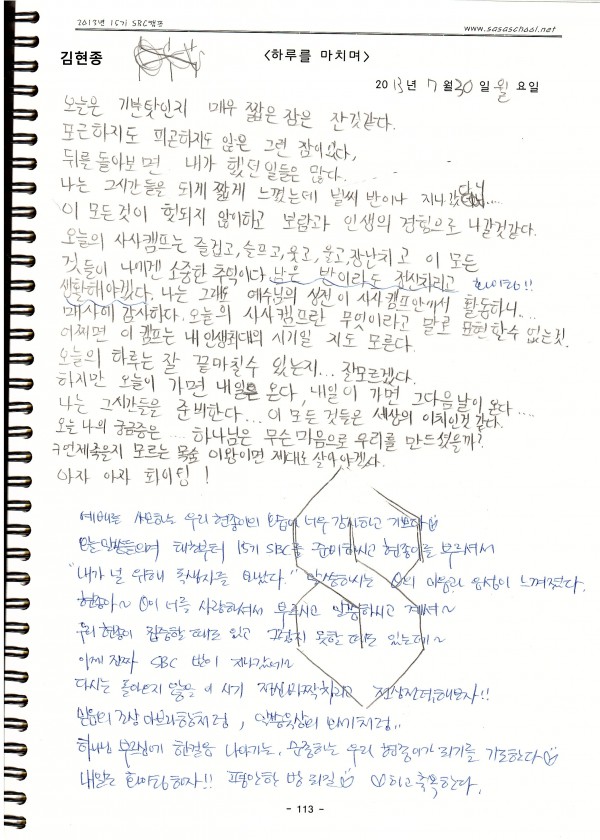 2013년 15기 SBC캠프
www.sasaschool.net
김현종
<하루를 마치며>
2013년 7월30일 월요일
오늘은 기분탓인지 매우 짧은 잠은 잔것같다.
포근하지도 피곤하지도 않은 그런 잠이었다,
뒤를 돌아보면 내가 했던일들은 많다....
나는 그시간들을 되게 짧게 느꼈는데 벌써 반이나 지나갔다니....
이 모든것이 헛되지 않이하고 보람과 인생의 경험으로 나갈것같다.
오늘의 사사캠프는 즐겁고,슬프고,웃고,울고,장난치고 이 모든
것들이 나에겐 소중한 추억이다. 남은 반이라도 정신차리고 화이팅!!
생활해야겠다. 나는 그래도 예수님의 성전이 사사캠프안에서 활동하니...
매사에 감사하다. 오늘의 사사캠프란 무엇이라고 말로 표현할수 없는것.
어쩌면 이 캠프는 내 인생최대의 시기일 지도 모른다.
오늘의 하루는 잘 끝마칠수 있는지... 잘모르겠다.
하지만 오늘이 가면 내일은 온다, 내일이 가면 그다음날이 온다....
나는 그시간들을 준비한다... 이 모든 것들은 세상의 이치인것 같다.
오늘 나의 궁금증은 .... 하나님은 무슨 마음으로 우리를 만드셨을까?
언제죽을지 모르는 목숨 이왕이면 제대로 살아야겠다.
아자 아자 화이팅!
예배를 사모하는 우리 현종이의 모습이 너무 감사하고 기쁘다
오늘 말씀들으며 태초부터 15기 SBC를 준비하시고 현종이를 부르셔서
"내가 널 위해 독생자를 보냈다." 말씀하시는 의 마음과 음성이 느껴졌다.
현종아~ 이 너를 사랑하셔서 부르시고 말씀하시고 계셔~
우리 현종이 집중할 때도 있고 그렇지 못할 때도 있는데~
이제 진짜 SBC 반이 지나갔네~
다시는 돌아오지 않을 이 시기 정신바짝차리고 전심전력해보자!!
믿음의 조상 아브라함처럼,
하나님 부르심에 한걸음 나아가는, 순종하는 우리 현종이가 되기를 기도한다
내일도 화이팅하자!! 평안한 밤 되길 하고 축복한다.
- 113 -